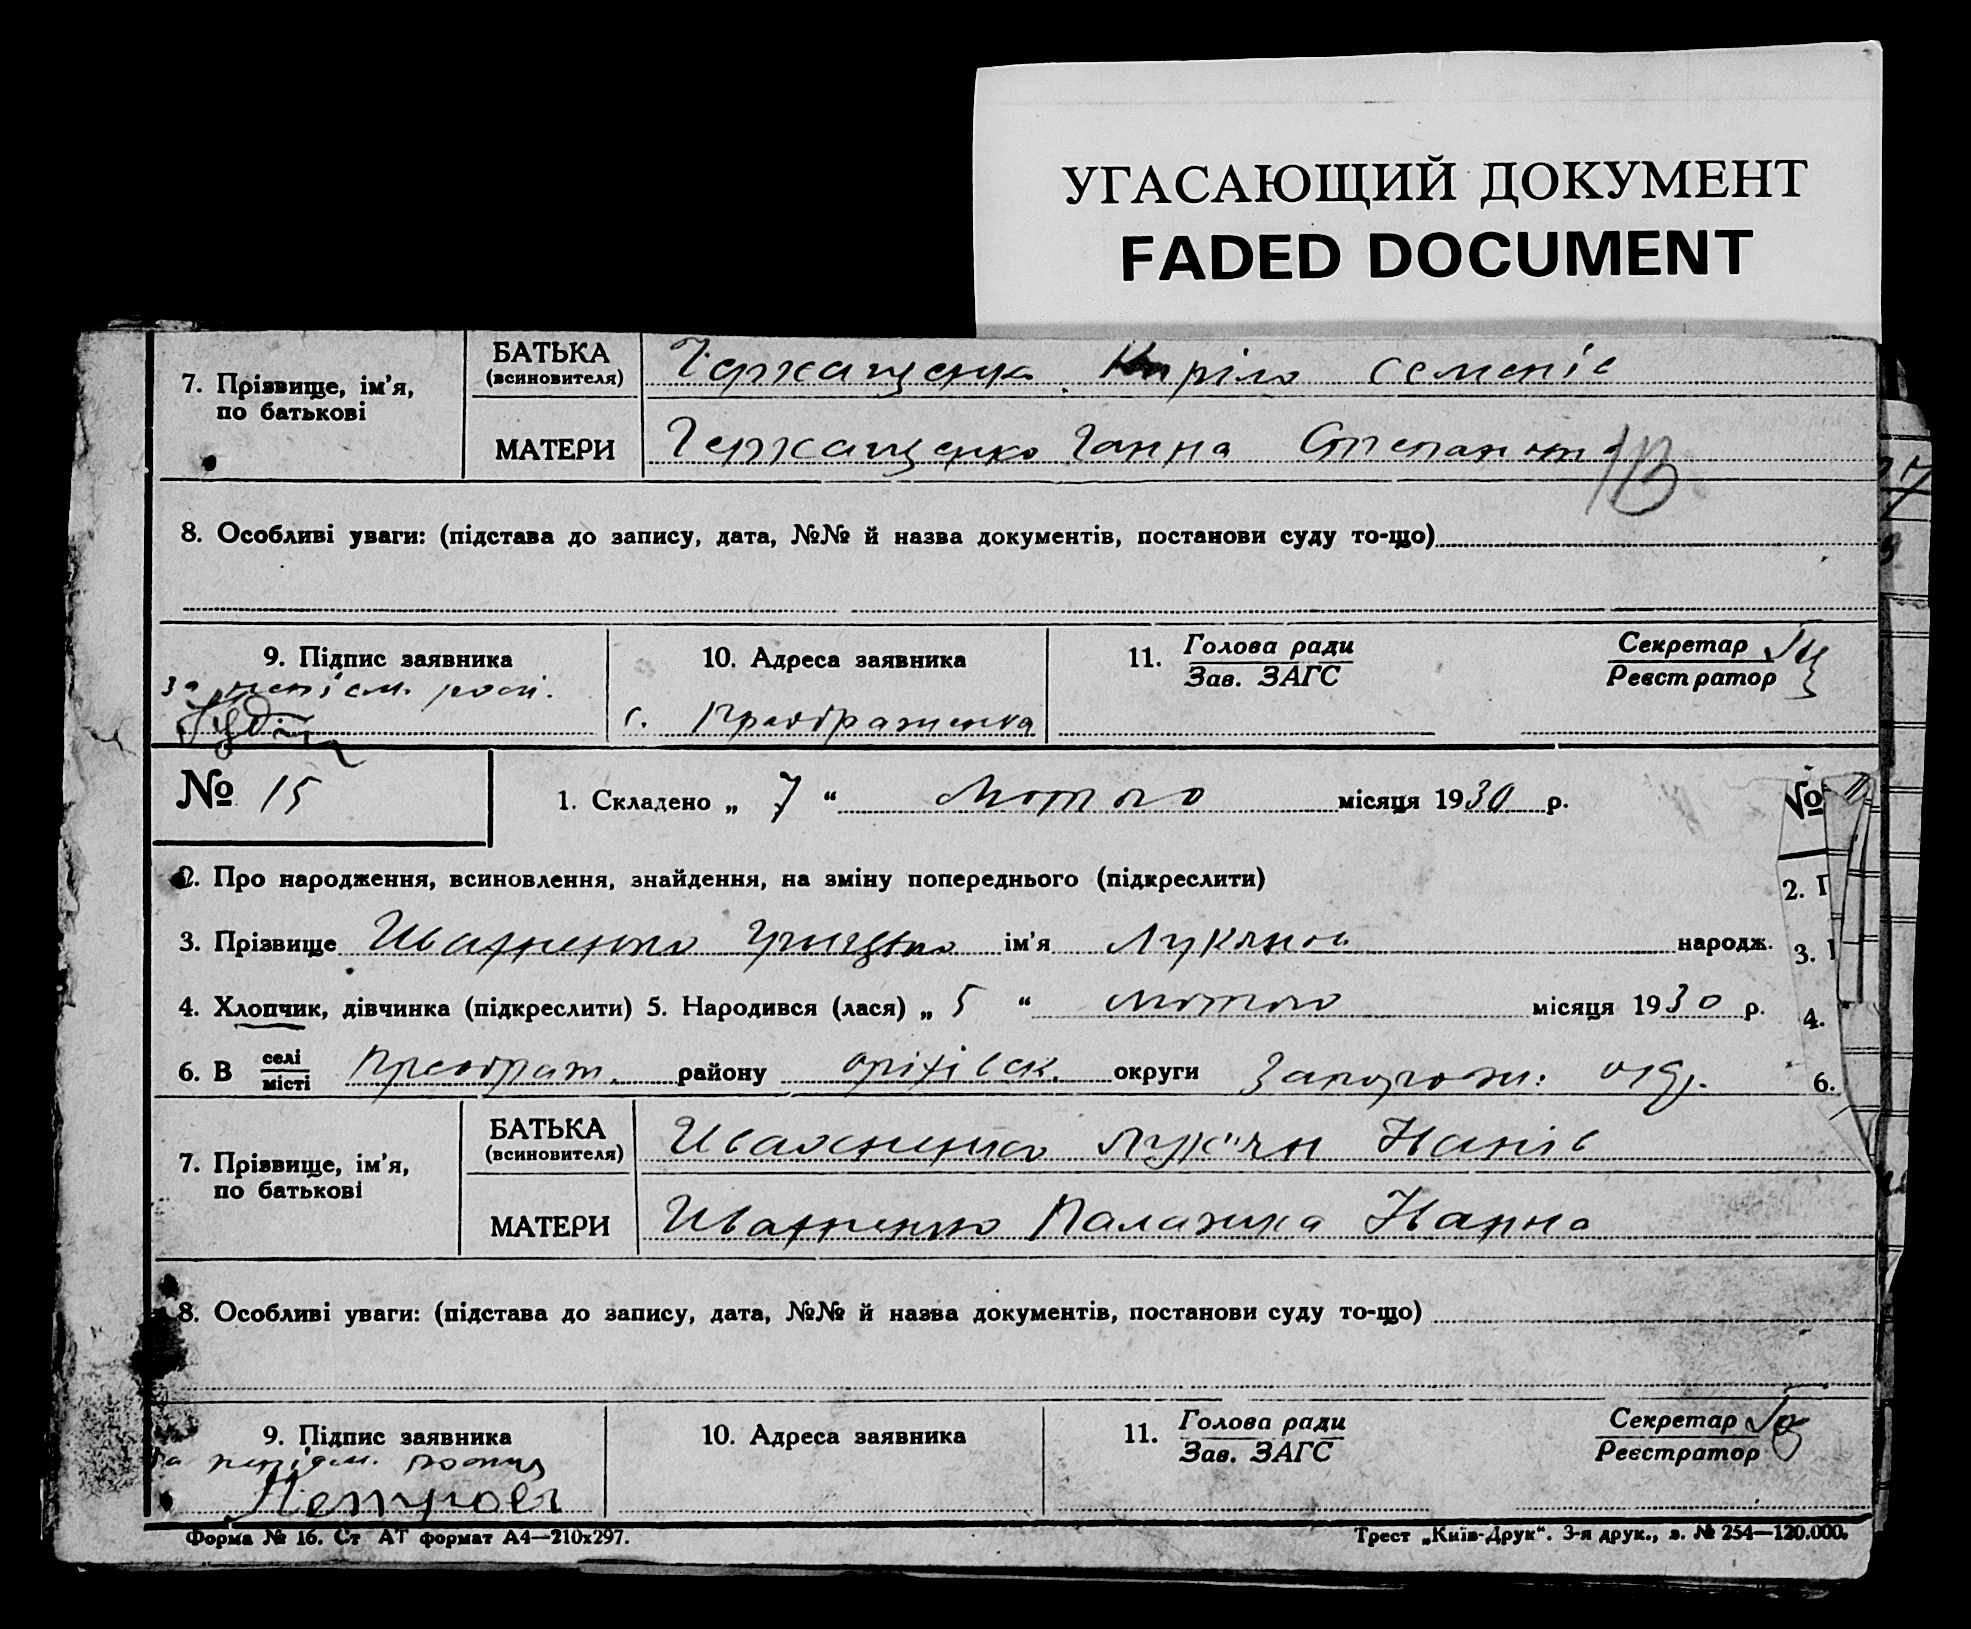 УГАСАЮЩИЙ ДОКУМЕНТ
FADED DOCUMENT
7. Прізвище, ім'я, по батькові
БАТЬКА (всиновителя) Кирило Семенів
МАТЕРИ Ганна
8. Особливі уваги: (підстава до запису, дата, №№ й назва документів, постанови суду то-що)
9. Підпис заявника
10. Адреса заявника
с. Преображенка
11. Голова ради
Зав. ЗАГС
Секретар
Реєстратор
№ 15
1. Складено „ 7 “ Лютого місяця 1930 р.
2. Про народження, всиновлення, знайдення, на зміну попереднього (підкреслити)
3. Прізвище Іваненко ім'я народж.
4. Хлопчик, дівчинка (підкреслити) 5. Народився (лася) „ 5 “ лютого місяця 1930 р.
6. В селі/місті Преображ. району Оріхівськ. округи Запорож.
7. Прізвище, ім'я, по батькові
БАТЬКА (всиновителя) Лук'ян Іванів
МАТЕРИ Палажка
8. Особливі уваги: (підстава до запису, дата, №№ й назва документів, постанови суду то-що)
9. Підпис заявника
10. Адреса заявника
11. Голова ради
Зав. ЗАГС
Секретар
Реєстратор
Форма № 16. Ст АТ формат А4—210х297.
Трест „Київ-Друк“. 3-я друк., з. № 254—120.000.